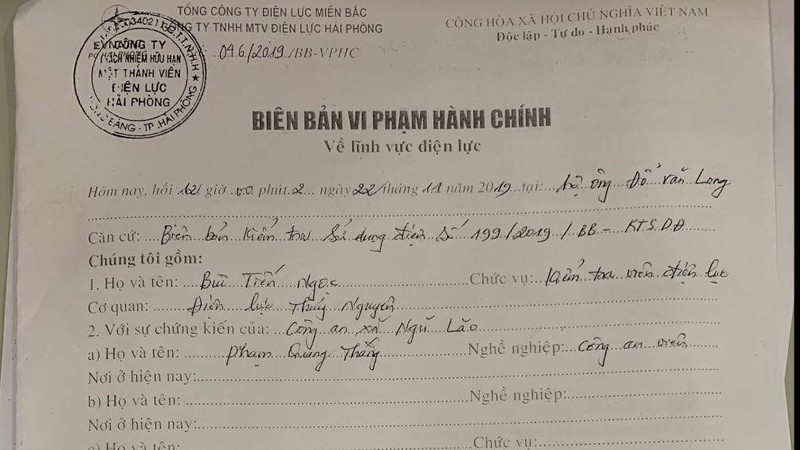 TỔNG CÔNG TY ĐIỆN LỰC MIỀN BẮC
CÔNG TY TNHH MTV ĐIỆN LỰC HẢI PHÒNG
046/2019/BB-VPHC
CỘNG HÒA XÃ HỘI CHỦ NGHĨA VIỆT NAM
Độc lập - Tự do - Hạnh phúc
CÔNG TY
TRÁCH NHIỆM HỮU HẠN
MỘT THÀNH VIÊN
ĐIỆN LỰC
HẢI PHÒNG
BIÊN BẢN VI PHẠM HÀNH CHÍNH
Về lĩnh vực điện lực
Hôm nay, hồi 12 giờ 00 phút 2 ngày 22 tháng 11 năm 2019 tại: hộ ông Đỗ Văn Long
Căn cứ: Biên bản kiểm tra sử dụng điện số 199/2019/BB-KTSDĐ
Chúng tôi gồm:
1. Họ và tên: Bùi Tiến Ngọc Chức vụ: Kiểm tra viên điện lực
Cơ quan: Điện lực Thủy Nguyên
2. Với sự chứng kiến của: Công an xã Ngũ Lão
a) Họ và tên: Phạm Quang Thắng Nghề nghiệp: Công an viên
Nơi ở hiện nay:
b) Họ và tên: Nghề nghiệp:
Nơi ở hiện nay:
c) Họ và tên: Chức vụ: